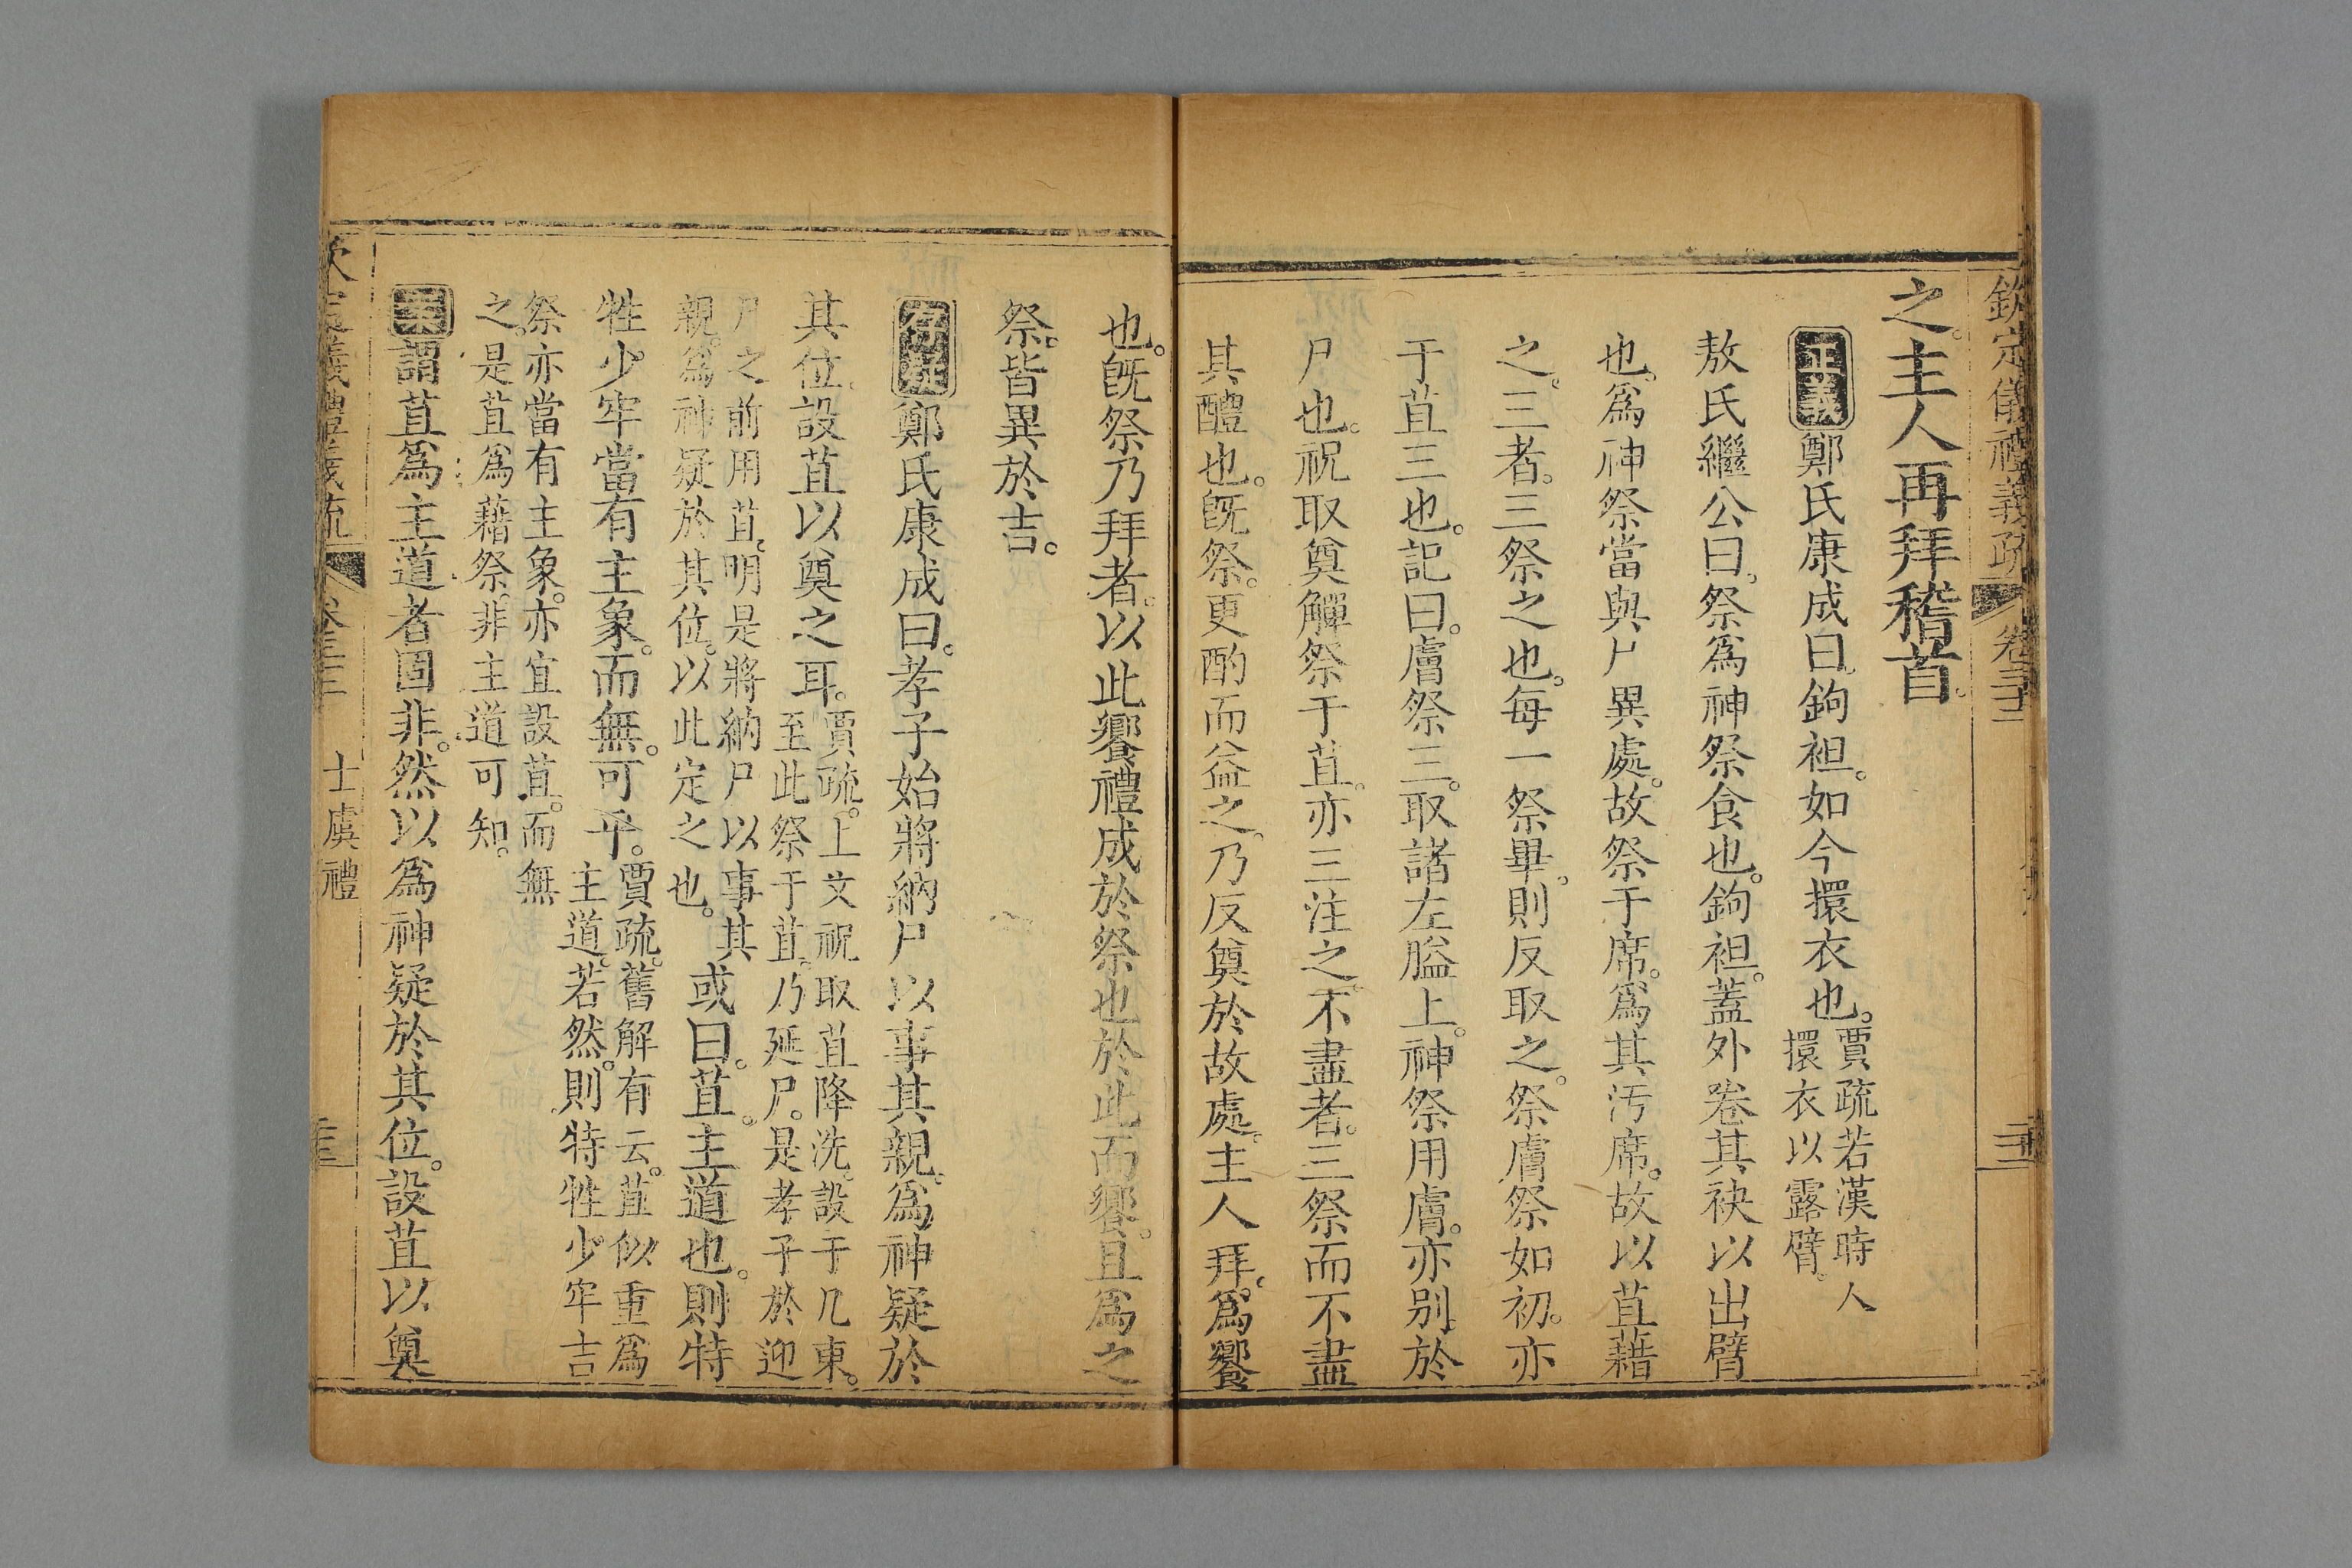 欽定儀禮義疏 卷三十三
之。主人再拜稽首。
正義 鄭氏康成曰。鉤袒。如今擐衣也。賈疏若漢時人
擐衣以露臂。
敖氏繼公曰。祭爲神祭食也。鉤袒。蓋外卷其袂以出臂
也。爲神祭當與尸異處。故祭于席。爲其汚席。故以苴藉
之。三者。三祭之也。每一祭畢。則反取之。祭膚祭如初。亦
于苴三也。記曰。膚祭三。取諸左膉上。神祭用膚。亦別於
尸也。祝取奠觶祭于苴。亦三注之。不盡者。三祭而不盡
其醴也。旣祭。更酌而益之。乃反奠於故處。主人拜。爲饗
也。旣祭乃拜者。以此饗禮成於祭也於此而饗。且爲之
祭。皆異於吉。
存疑 鄭氏康成曰。孝子始將納尸以事其親。爲神疑於
其位。設苴以奠之耳。賈疏。上文祝取苴降洗。設于几東。
至此祭于苴。乃延尸。是孝子於迎
尸之前用苴。明是將納尸以事其
親。爲神疑於其位。以此定之也。
或曰。苴。主道也。則特
牲少牢當有主象。而無。可乎。賈疏。舊解有云。苴似重爲
主道。若然。則特牲少牢吉
祭亦當有主象。亦宜設苴。而無
之。是苴爲藉祭。非主道可知。
案 謂苴爲主道者固非。然以爲神疑於其位。設苴以奠
士虞禮